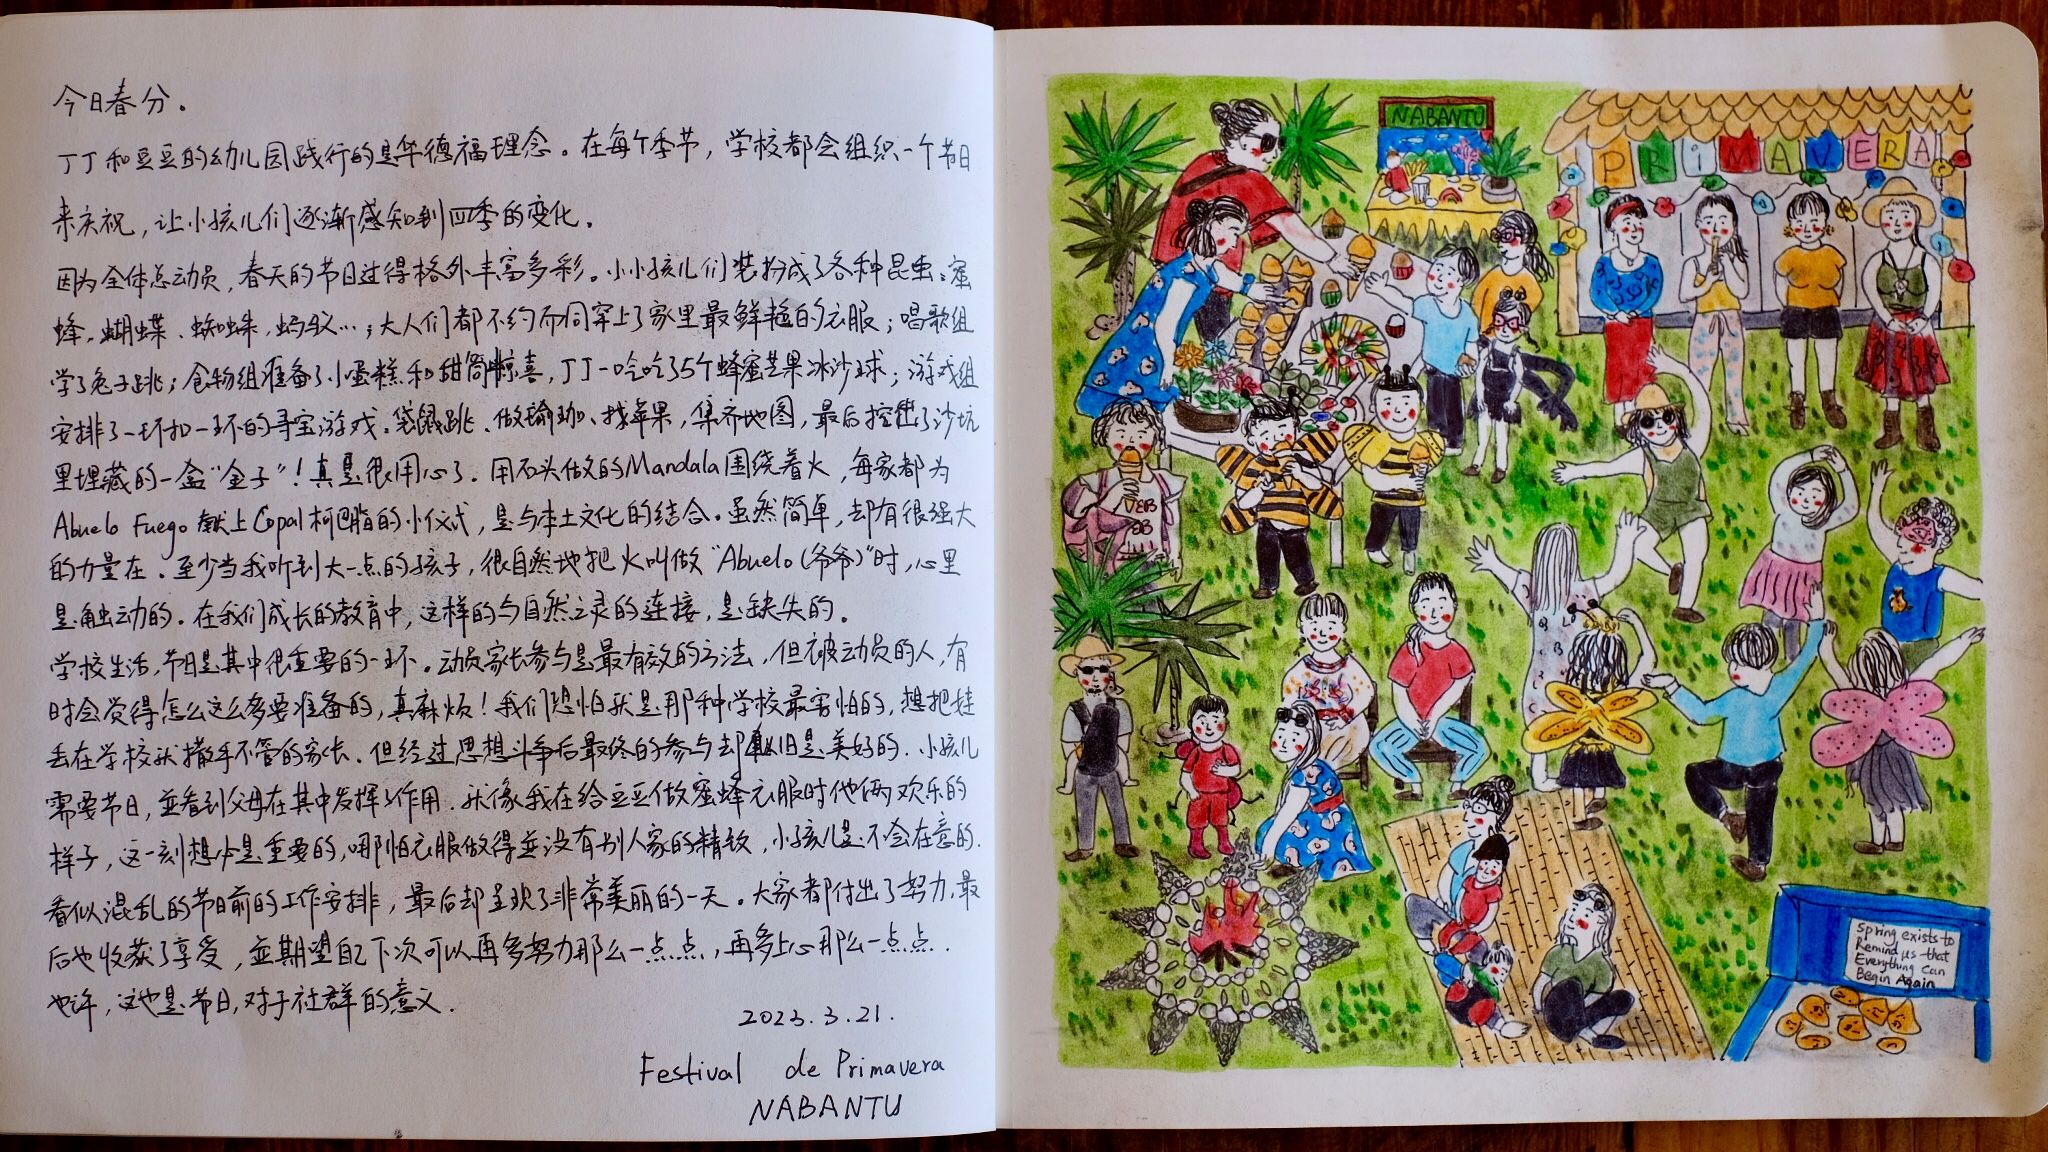 今日春分。
丁丁和豆豆的幼儿园践行的是华德福理念。在每个季节，学校都会组织一个节日
来庆祝，让小孩儿们逐渐感知到四季的变化。
因为全体总动员，春天的节日过得格外丰富多彩。小小孩儿们装扮成了各种昆虫：蜜
蜂、蝴蝶、蜘蛛、蚂蚁…；大人们都不约而同穿上了家里最鲜艳的衣服；唱歌组
学了兔子跳；食物组准备了小蛋糕和甜筒惊喜，丁丁一口气吃了5个蜂蜜芒果冰沙球；游戏组
安排了一环扣一环的寻宝游戏。袋鼠跳、做瑜珈、找苹果，集齐地图，最后挖出了沙坑
里埋藏的一盒“金子”！真是很用心了。用石头做的Mandala围绕着火，每家都为
Abuelo Fuego 献上Copal柯巴脂的小仪式，是与本土文化的结合。虽然简单，却有很强大
的力量在。至少当我听到大一点的孩子，很自然地把火叫做“Abuelo（爷爷）”时，心里
是触动的。在我们成长的教育中，这样的与自然之灵的连接，是缺失的。
学校生活，节日是其中很重要的一环。动员家长参与是最有效的方法，但被动员的人，有
时会觉得怎么这么多要准备的，真麻烦！我们恐怕就是那种学校最害怕的，想把娃
丢在学校就撒手不管的家长。但经过思想斗争后最终的参与却依旧是美好的。小孩儿
需要节日，並看到父母在其中发挥了作用。就像我在给豆豆做蜜蜂衣服时他俩欢乐的
样子，这一刻想必是重要的，哪怕衣服做得並没有别人家的精致，小孩儿是不会在意的。
看似混乱的节日前的工作安排，最后却呈现了非常美丽的一天。大家都付出了努力，最
后也收获了享受，並期望自己下次可以再多努力那么一点点，再多上心那么一点点。
也许，这也是节日，对于社群的意义。
2023.3.21.
Festival de Primavera
NABANTU
NABANTU
PRIMAVERA
Spring exists to
Remind us that
Everything Can
Begin Again